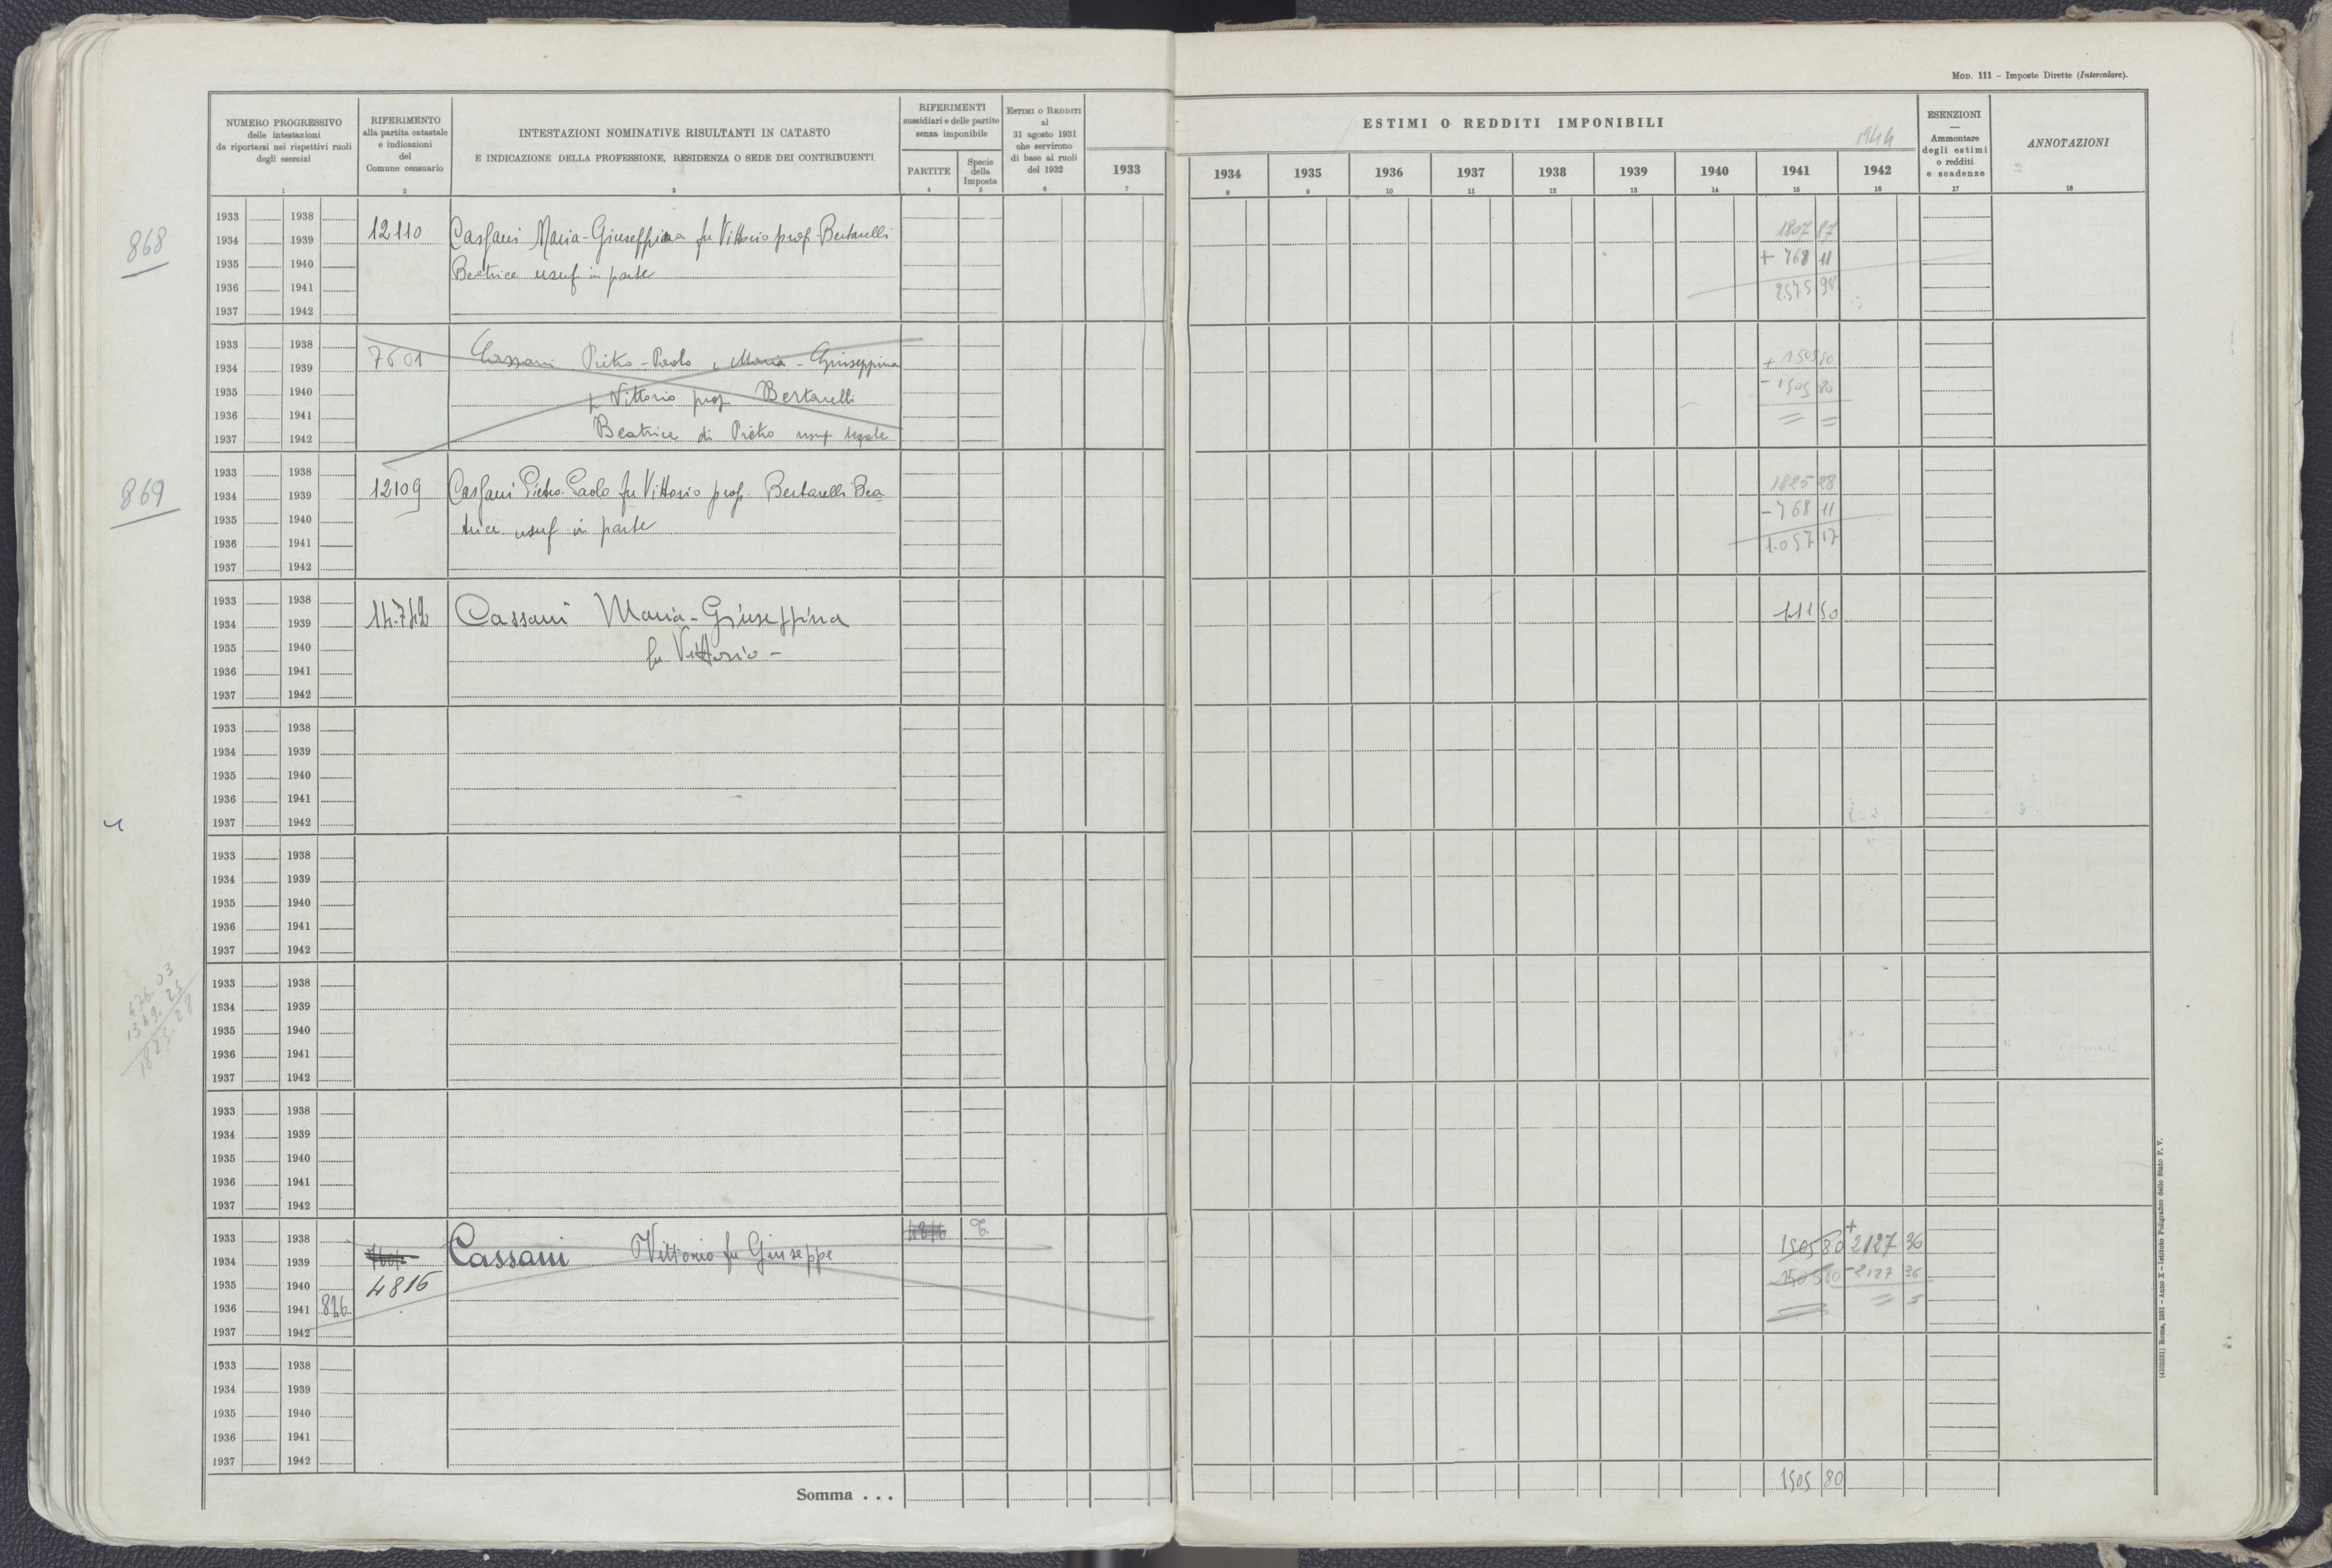 MOD. 111 – Imposte Dirette (Intercalare).
NUMERO PROGRESSIVO
delle intestazioni
da riportarsi nei rispettivi ruoli
degli esercizi
1
RIFERIMENTO
alla partita catastale
e indicazioni
del
Comune censuario
2
INTESTAZIONI NOMINATIVE RISULTANTI IN CATASTO
E INDICAZIONE DELLA PROFESSIONE, RESIDENZA O SEDE DEI CONTRIBUENTI
3
RIFERIMENTI
sussidiari e delle partite
senza imponibile
PARTITE
4
Specie
della
Imposta
5
ESTIMI O REDDITI
al
31 agosto 1931
che servirono
di base ai ruoli
del 1932
6
1933
7
ESTIMI O REDDITI IMPONIBILI
1944
1934 1935 1936 1937 1938 1939 1940 1941 1942
8 9 10 11 12 13 14 15 16
ESENZIONI
—
Ammontare
degli estimi
o redditi
e scadenze
17
ANNOTAZIONI
18
868
1933 1938
1934 1939 12110 Cassani Maria-Giuseppina fu Vittorio prop Bertarelli 1807 87
1935 1940 Beatrice usuf in parte + 768 11
1936 1941 2575 98
1937 1942
1933 1938
1934 1939 7601 Cassani Pietro-Paolo e Maria-Giuseppina + 1505 80
1935 1940 fu Vittorio prop Bertarelli - 1505 80
1936 1941 = =
1937 1942 Beatrice di Pietro usuf legale
869
1933 1938
1934 1939 12109 Cassani Pietro-Paolo fu Vittorio prop. Bertarelli Bea 1825 28
1935 1940 trice usuf in parte - 768 11
1936 1941 1.057 17
1937 1942
1933 1938
1934 1939 Cassani Maria-Giuseppina 50
1935 1940 fu Vittorio -
1936 1941
1937 1942
1933 1938
1934 1939
1935 1940
1936 1941
1937 1942
1933 1938
1934 1939
1935 1940
1936 1941
1937 1942
476.03
1349.25
1825.28
1933 1938
1934 1939
1935 1940
1936 1941
1937 1942
1933 1938
1934 1939
1935 1940
1936 1941
1937 1942
1933 1938 4816 T.
1934 1939 7601 Cassani Vittorio fu Giuseppe 1505 80 + 2127 36
1935 1940 4816 1505 80 - 2127 36
1936 1941 826 = =
1937 1942
1933 1938
1934 1939
1935 1940
1936 1941
1937 1942
Somma . . . 1505 80
(4103531) Roma, 1931 - Anno X - Istituto Poligrafico dello Stato P. V.